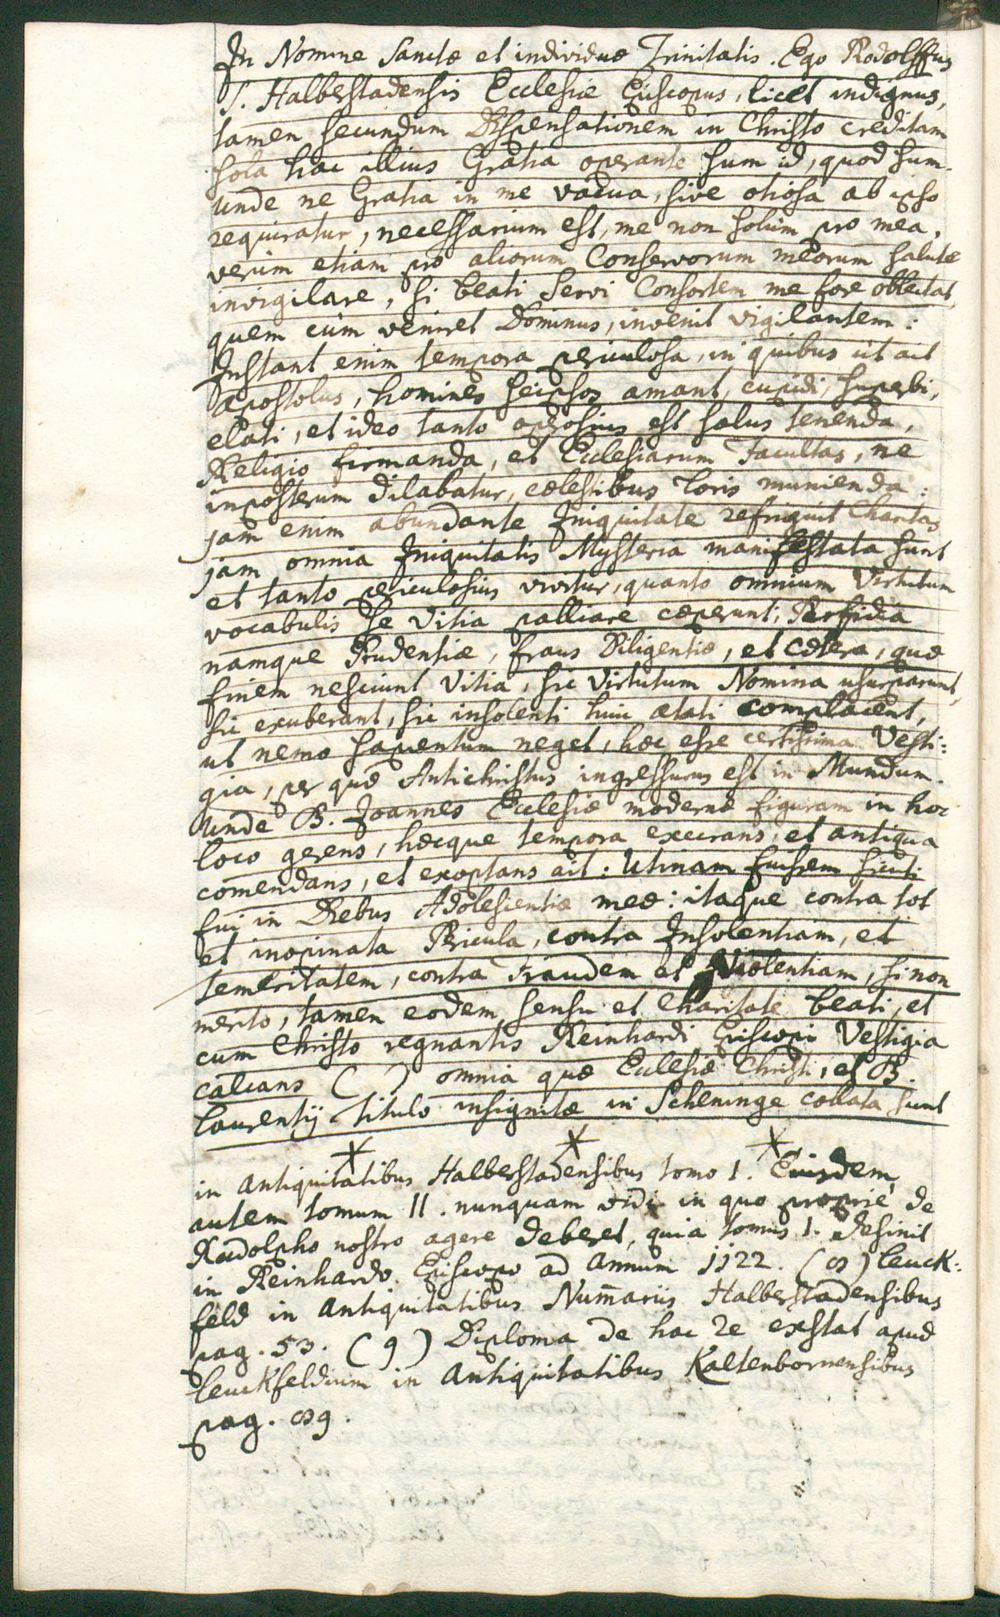 In Nomine Sanctæ et individuæ Trinitatis. Ego Rodolffus
S. Halberstadensis Ecclesiæ Episcopus, licet indignus,
tamen secundum Dispensationem in Christo creditam
sola hac illius Gratia operante sum id, quod sum.
unde ne Gratia in me vacua, sive otiosa ab ipso
requiratur, necessarium est, me non solùm pro mea,
verùm etiam pro aliorum Conservorum meorum salute
invigilare, si beati Servi Consortem me fore oblectat,
quem cùm veniret Dominus, invenit vigilantem:
Instant enim tempora periculosa, in quibus ut ait
Apostolus, homines seipsos amant, cupidi, superbi,
elati, et ideo tanto operosius est salus tenenda,
Religio firmanda, et Ecclesiarum Facultas, ne
inposterum dilabatur, cœlestibus loris munienda:
jam enim abundante Iniquitate refriguit Charitas
jam omnia Iniquitatis Mysteria manifestata sunt
et tanto periculosius vivitur, quanto omnium Virtutum
vocabulis se Vitia palliare cœperunt; Perfidia
namque Prudentiæ, fraus Diligentiæ, et cætera, quæ
finem nesciunt Vitia, sic Virtutum Nomina usurparunt,
sic exuberant, sic insolenti huic ætati complacent,
ut nemo sapientum neget, hæc esse certissima Vesti:
gia, per quæ Antichristus ingressurus est in Mundum.
Unde B. Joannes Ecclesiæ modernæ figuram in hoc
loco gerens, hæcque tempora execrans, et antiqua
comendans, et exoptans ait: Utinam fuissem sicuti
fui in Diebus Adolescentiæ meæ: itaque contra tot
et inopinata Pericula, contra Insolentiam, et
temeritatem, contra Fraudem et Violentiam, si non
merito, tamen eodem sensu et Charitate beati, et
cum Christo regnantis Reinhardi Episcopi Vestigia
calcans ( ) omnia quæ Ecclesiæ Christi, et B.
Laurentij titulo insignitæ in Scheninge collata sunt
* * *
in Antiquitatibus Halberstadensibus tomo I. Eiusdem
autem tomum II. nunquam vidi in quo proprié de
Rudolpho nostro agere deberet, quia tomus I. desinit
in Reinhardo Episcopo ad Annum 1122. (8) leuck:
feld in Antiquitatibus Num̄ariis Halberstadensibus
pag. 53. (9) Diploma de hac re exstat apud
leuckfeldium in Antiquitatibus Kaltenbornensibus
pag. 89.